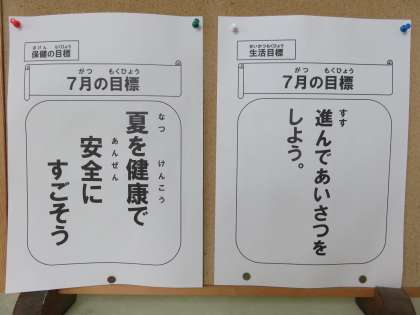 ほけん もくひょう
保健の目標
がつ もくひょう
7月の目標
なつ けんこう
夏を健康で
あんぜん
安全に
すごそう
せいかつもくひょう
生活目標
がつ もくひょう
7月の目標
すす
進んであいさつを
しよう。